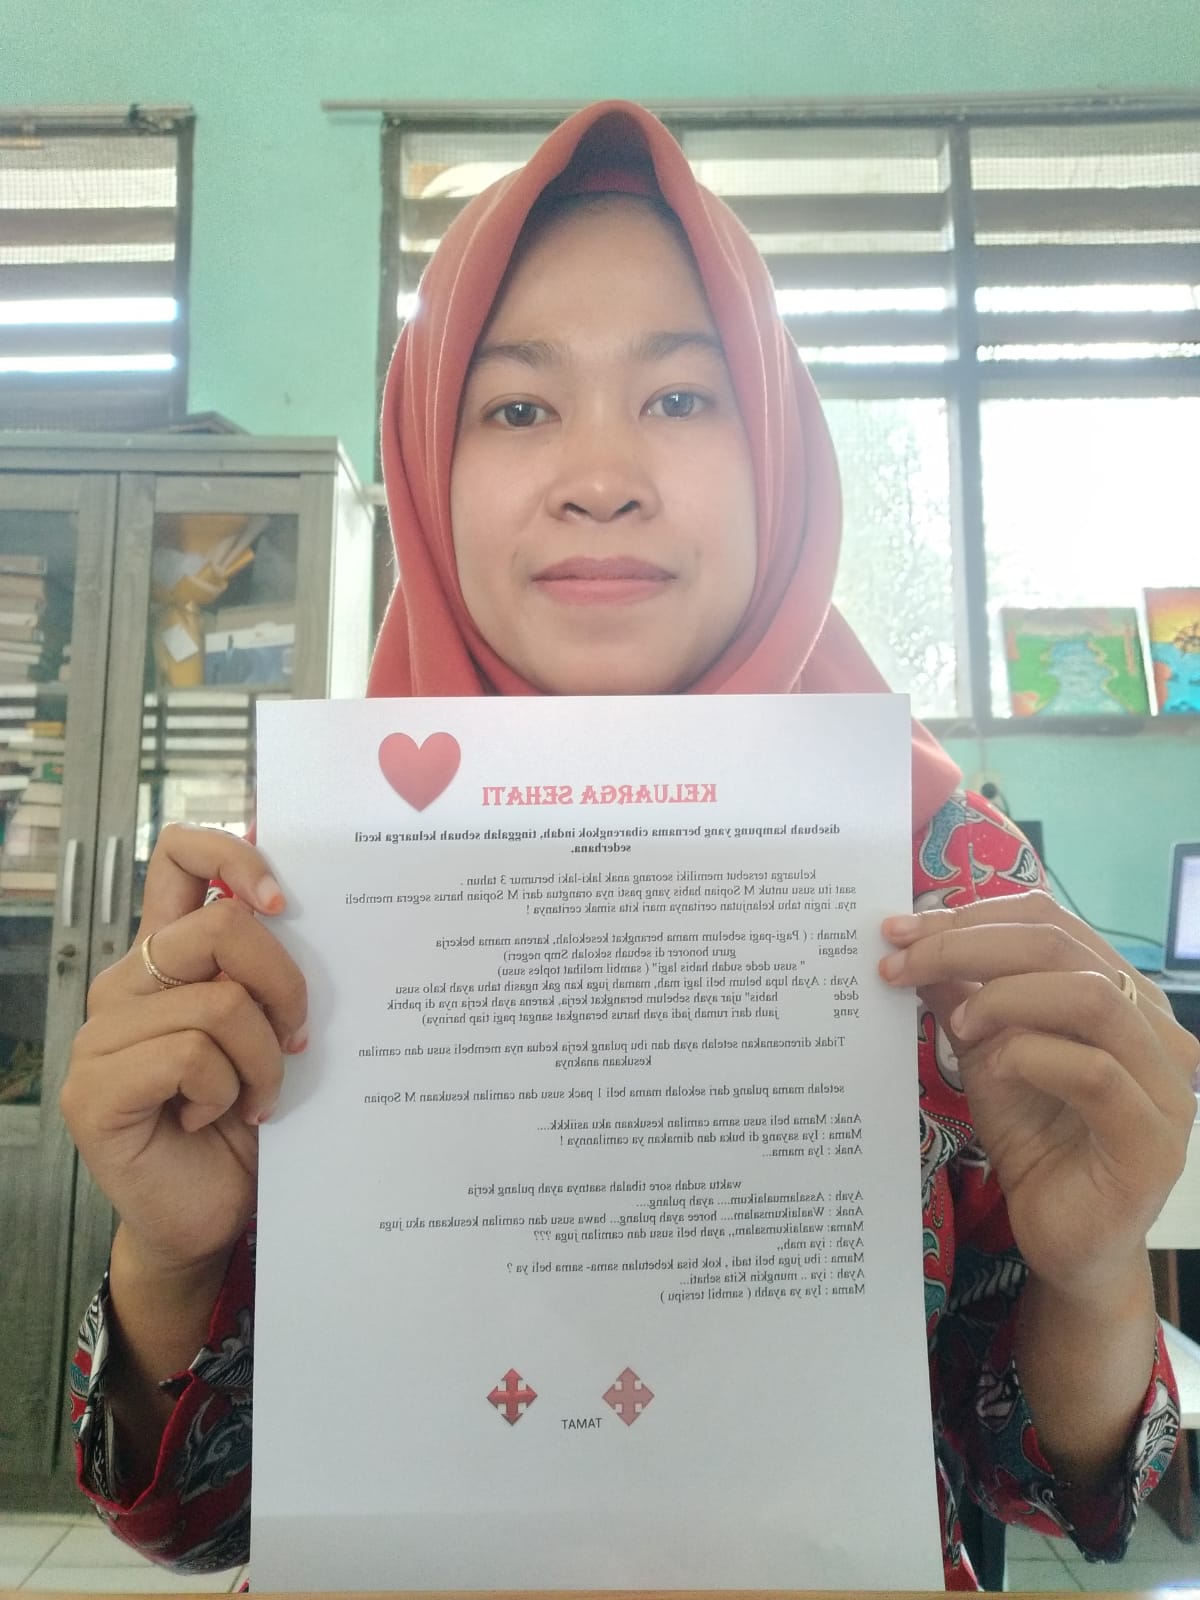 KELUARGA SEHATI
disebuah kampung yang bernama cibarengkok indah, tinggalah sebuah keluarga kecil
sederhana.
keluarga tersebut memiliki seorang anak laki-laki berumur 3 tahun .
saat itu susu untuk M Sopian habis yang pasti nya orangtua dari M Sopian harus segera membeli
nya. ingin tahu kelanjutan ceritanya mari kita simak ceritanya !
Mamah : ( Pagi-pagi sebelum mama berangkat kesekolah, karena mama bekerja
sebagai guru honorer di sebuah sekolah Smp negeri)
" susu dede sudah habis lagi" ( sambil melihat toples susu)
Ayah : Ayah lupa belum beli lagi mah, mamah juga kan gak ngasih tahu ayah kalo susu
dede habis" ujar ayah sebelum berangkat kerja, karena ayah kerja nya di pabrik
yang jauh dari rumah jadi ayah harus berangkat sangat pagi tiap harinya)
Tidak direncanakan setelah ayah dan ibu pulang kerja kedua nya membeli susu dan camilan
kesukaan anaknya
setelah mama pulang dari sekolah mama beli 1 pack susu dan camilan kesukaan M Sopian
Anak: Mama beli susu sama camilan kesukaan aku asiikkk....
Mama : Iya sayang di buka dan dimakan ya camilannya !
Anak : Iya mama...
waktu sudah sore tibalah saatnya ayah pulang kerja
Ayah : Assalamualaikum.... ayah pulang....
Anak : Waalaikumsalam.... horee ayah pulang... bawa susu dan camilan kesukaan aku juga
Mama: waalaikumsalam,, ayah beli susu dan camilan juga ???
Ayah : iya mah,,
Mama : ibu juga beli tadi , kok bisa kebetulan sama- sama beli ya ?
Ayah : iya .. mungkin Kita sehati...
Mama : Iya ya ayahh ( sambil tersipu )
TAMAT